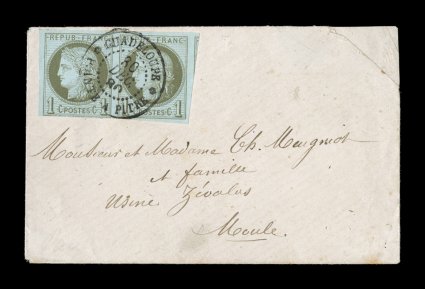 REPUB. FRANC. REPUB. FRANC.
GUADELOUPE
1 C POSTES C 1 C POSTES C 1
A PITRE
Monsieur et Madame Ch. Meugniot
et famille
Usine Zévalos
Moule.